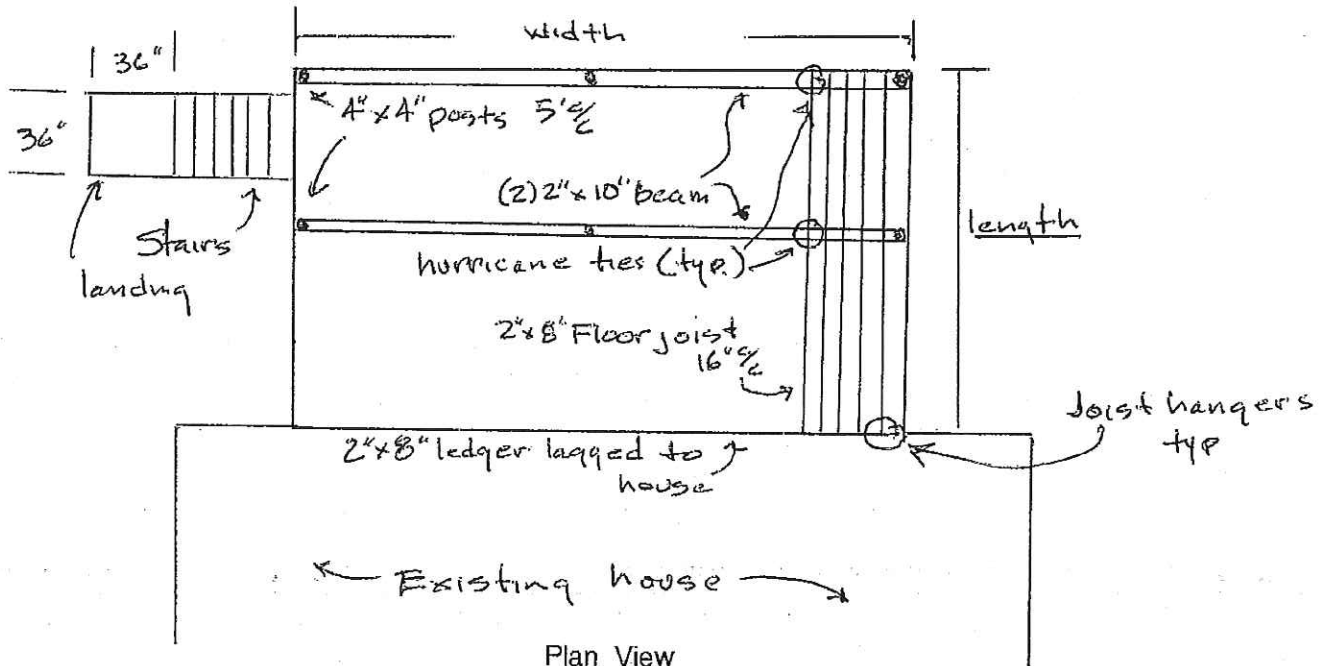 width
36"
36"
4"x4" posts 5' c/c
(2) 2"x10" beam
length
Stairs
landing
hurricane ties (typ.)
2"x8" Floor joist
16" c/c
Joist hangers
typ
2"x8" ledger lagged to
house
Existing house
Plan View